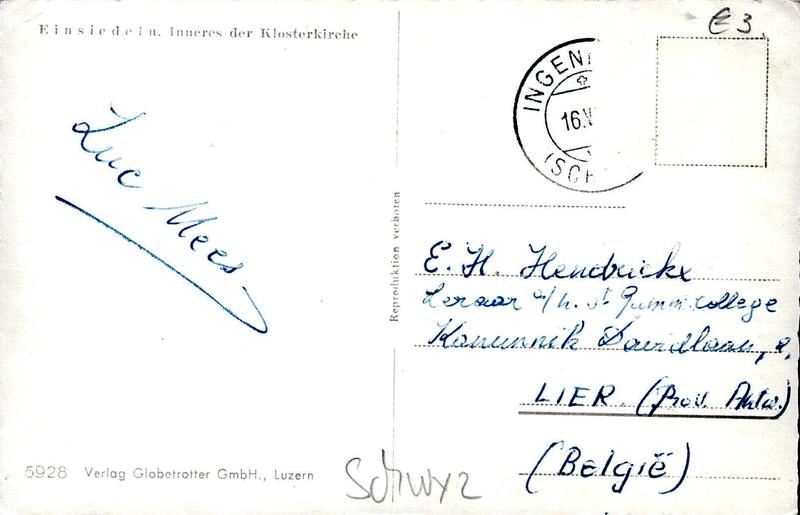 Einsiedeln. Inneres der Klosterkirche
€3.
INGEN
16.V
(SCH
Luc Mees
Reproduktion verboten
E. H. Hendrickx
Leraar a/h. St Gummarcollege
Kanunnik Davidlaan, 2.
LIER. (Prov. Antw.)
(België)
5928 Verlag Globetrotter GmbH., Luzern
Schwyz